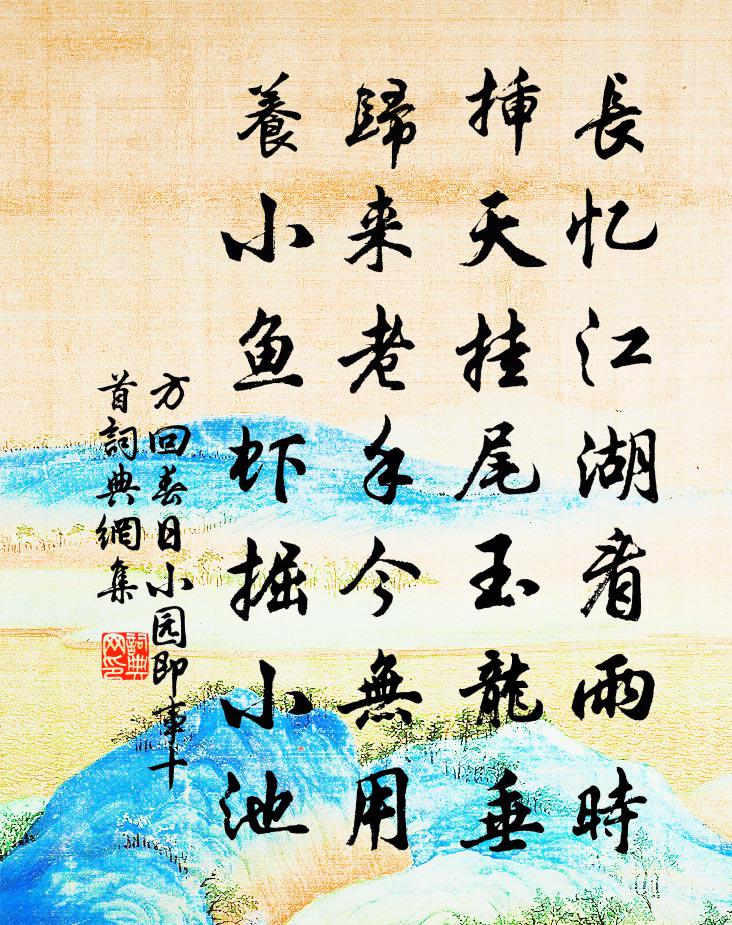 長忆江湖看雨時
揷天挂尾玉龍垂
歸来老手今無用
養小鱼虾掘小池
方回春日小园即事十
首詞典網集
詞典
网印